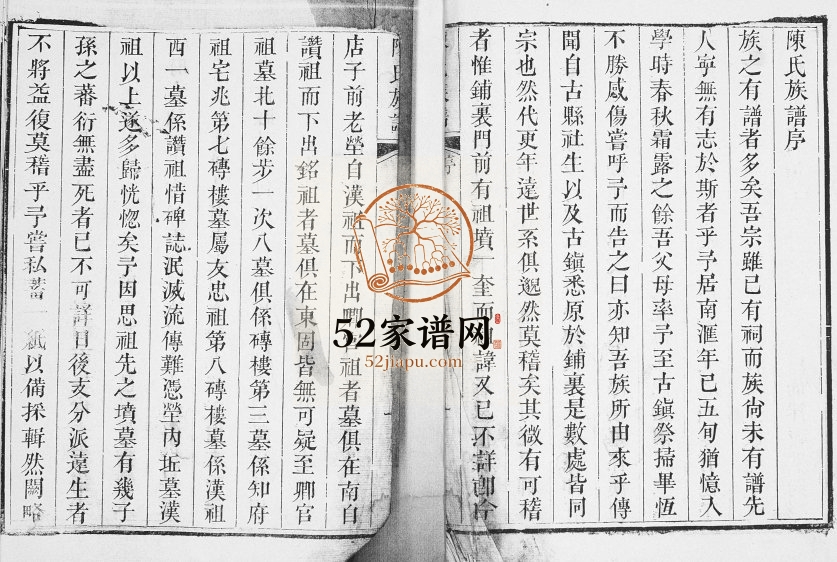 陳氏族譜序
族之有譜者多矣吾宗雖已有祠而族尚未有譜先
人寧無有志於斯者乎予居南滙年已五旬猶憶入
學時春秋霜露之餘吾父母率予至古鎭祭掃畢恆
不勝感傷嘗呼予而告之曰亦知吾族所由來乎傳
聞自古縣社生以及古鎭悉原於鋪裏是數處皆同
宗也然代更年遠世系俱邈然莫稽矣其微有可稽
者惟鋪裏門前有祖墳一奎而 諱又已不詳卽今
陳氏族譜 序
店子前老塋自漢祖而下出卿 祖者墓俱在南自
讚祖而下出銘祖者墓俱在東固皆無可疑至卿官
祖墓北十餘步一次八墓俱係磚樓第三墓係知府
祖宅兆第七磚樓墓屬友忠祖第八磚樓墓係漢祖
西一墓係讚祖惜碑誌泯滅流傳難憑塋內坵墓漢
祖以上遂多歸恍惚矣予因思祖先之墳墓有幾子
孫之蕃衍無盡死者已不可詳目後支分派遠生者
不將益復莫稽乎予嘗私蓄一紙以備採輯然闕略
52家谱网
52jiapu.com